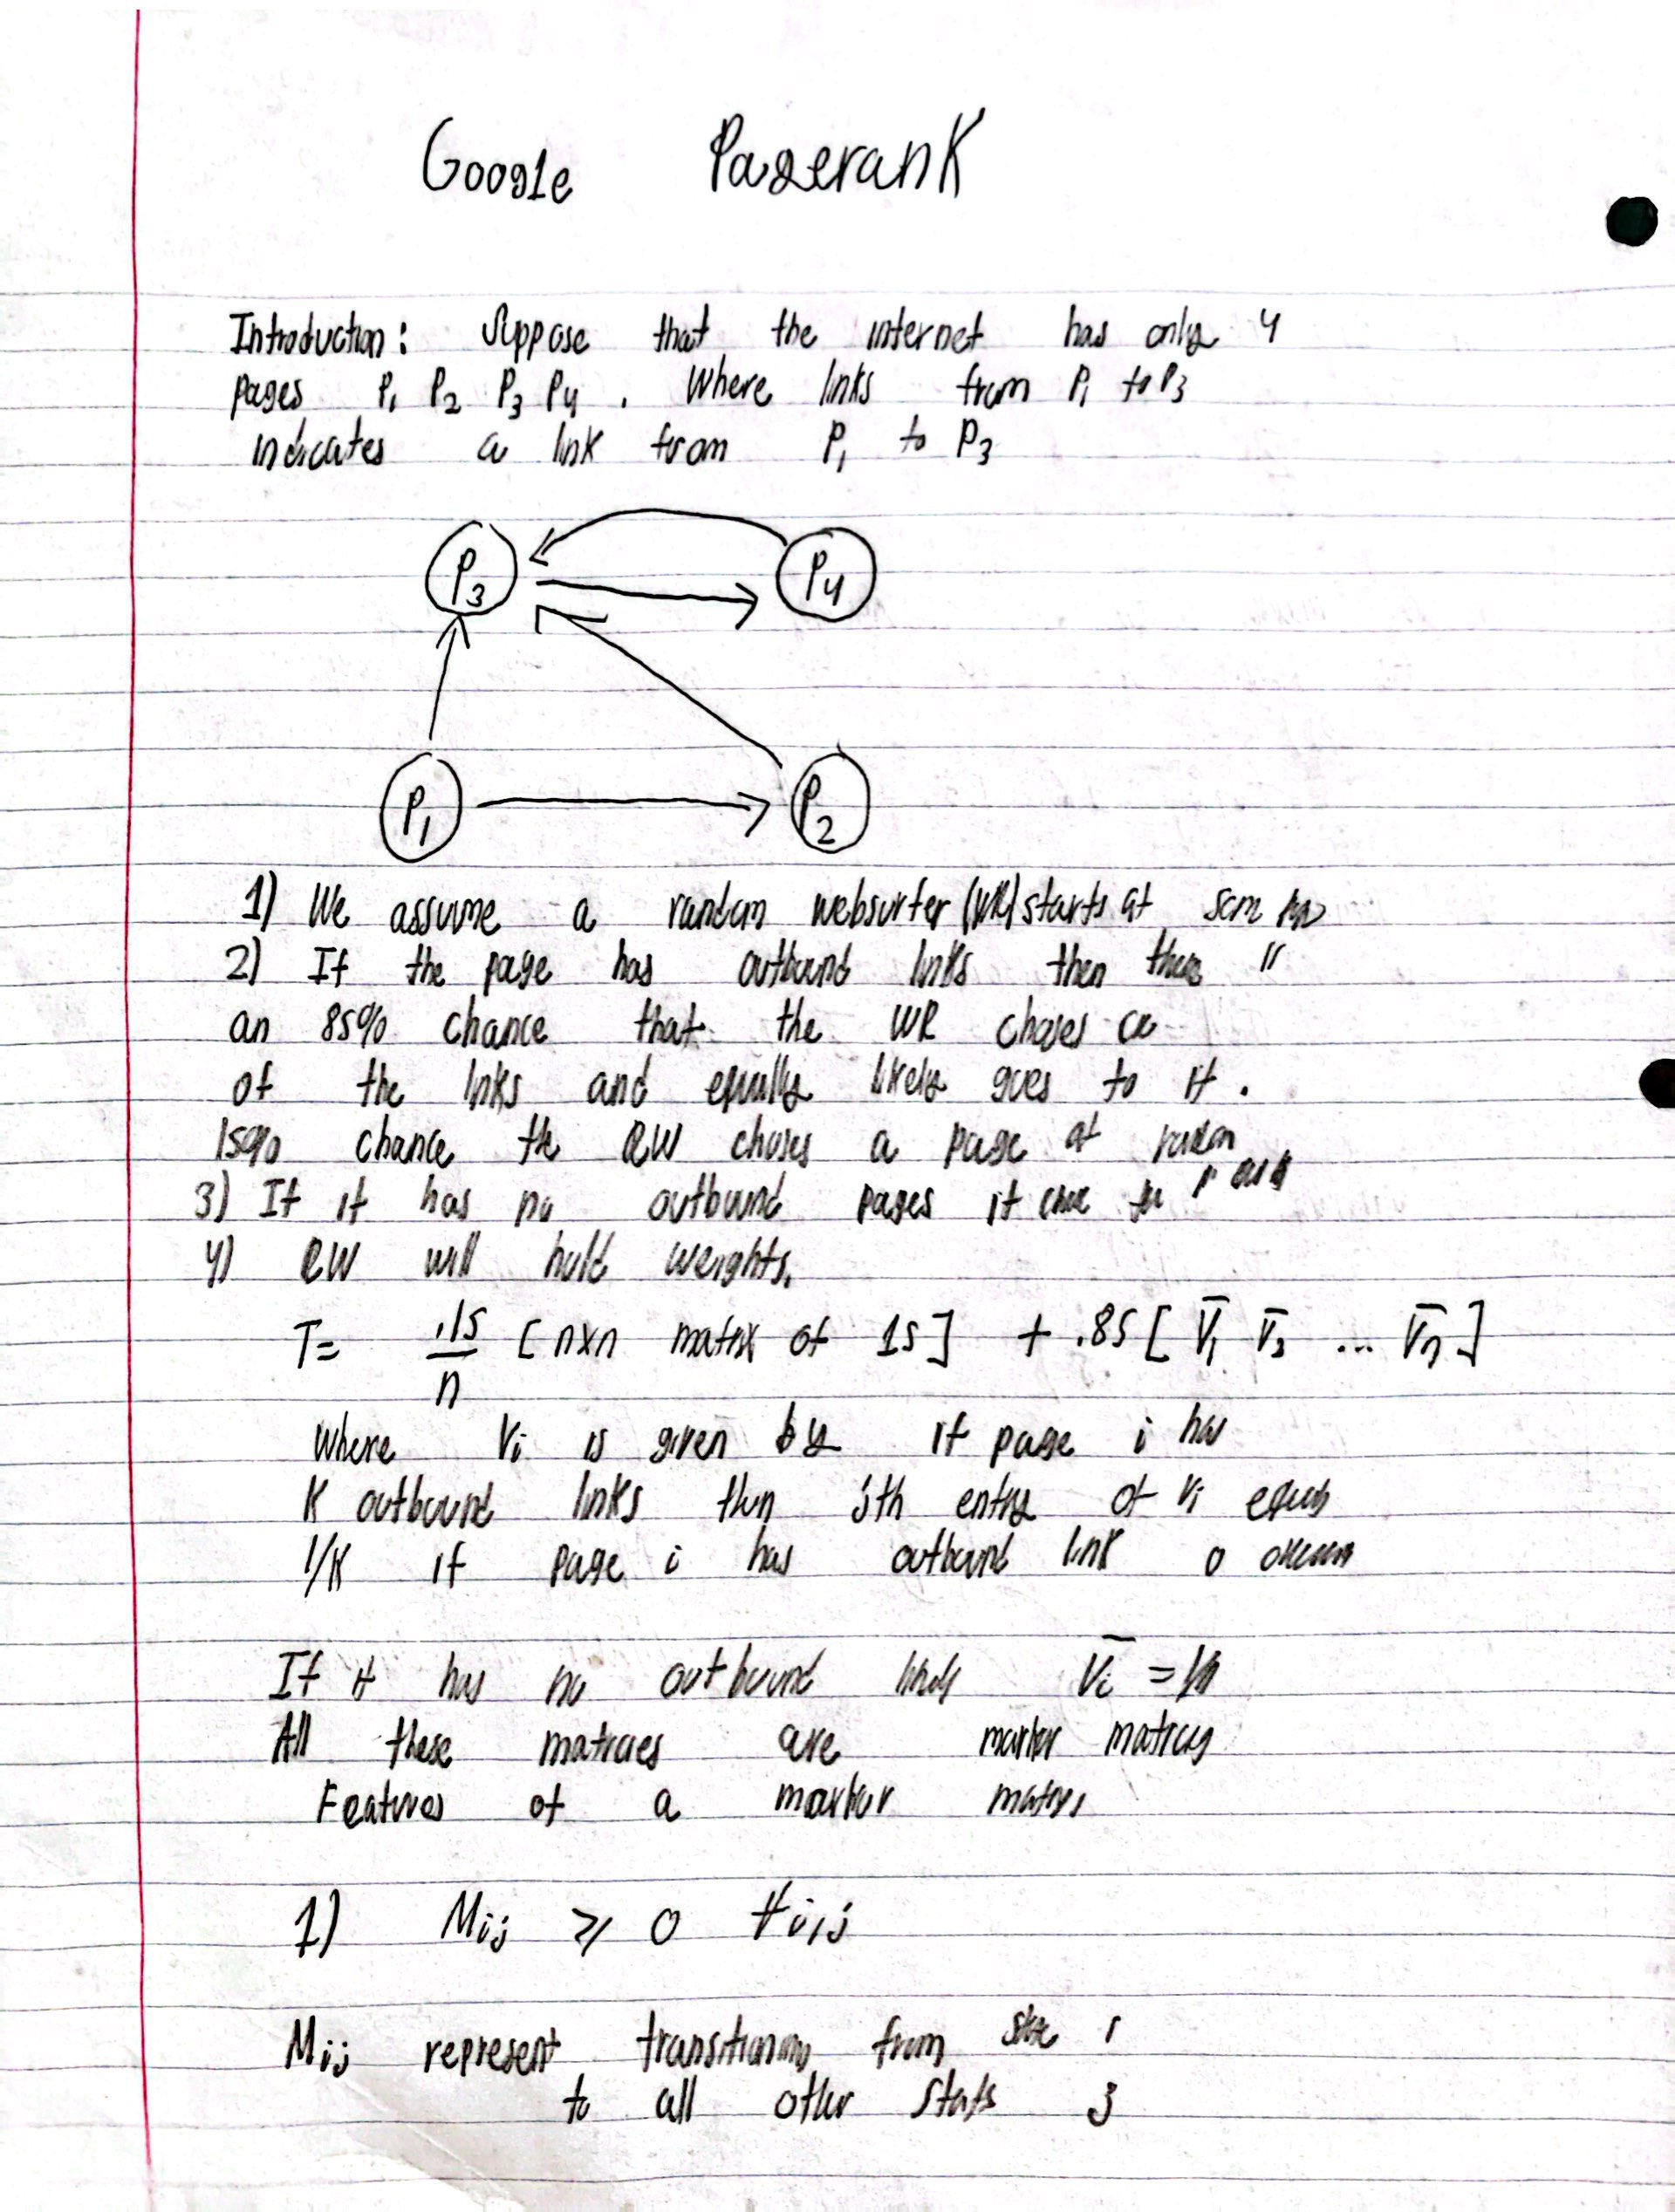 Google Pagerank
Introduction: Suppose that the internet has only 4
pages P1 P2 P3 P4 . Where links from P1 to P3
indicates a link from P1 to P3
P3 P4
P1 P2
1) We assume a random websurfer (WR) starts at som
2) If the page has outbound links then there
an 85% chance that the WR choses
of the links and equally likely goes to it .
15% chance the RW choses a page at
3) If it has no outbound pages it
4) RW will hold weights.
T= .15/n [ nxn matrix of 1s ] + .85 [ V̄1 V̄2 ... V̄n ]
Where Vi is given by if page i has
K outbound links then jth entry of Vi equals
1/K if page i has outbound link 0
If it has no outbound V̄i = 1/n
All these matrices are matrices
Features of a matrix
1) Mij ⩾ 0 ∀i,j
Mij represent transitioning from state i
to all other states j